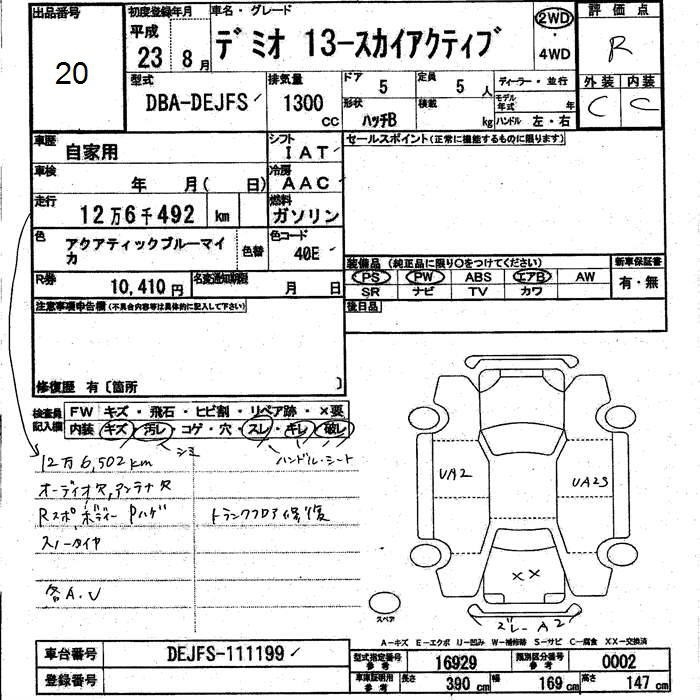 出品番号
20
初度登録年月
平成
23 8月
車名・グレード
デミオ 13-スカイアクティブ
2WD
4WD
評価点
R
型式
DBA-DEJFS
排気量
1300 cc
ドア
5
定員
5 人
形状
ハッチB
積載
kg
ディーラー・並行
モデル年式 年
ハンドル 左・右
外装 内装
C C
車歴
自家用
シフト
IAT
セールスポイント(正常に機能するものに限ります)
車検
年 月( 日)
冷房
AAC
走行
12万6千492 km
燃料
ガソリン
色
アクアティックブルーマイカ
色替
色コード
40E
装備品(純正品に限り○をつけてください)
新車保証書
PS PW ABS エアB AW
SR ナビ TV カワ
有・無
R券
10,410円
名変通知期限
月 日
後日品
注意事項申告欄(不具合内容等は具体的に記入して下さい)
修復歴 有〔箇所 〕
検査員記入欄
FW キズ・飛石・ヒビ割・リペア跡・×要
内装 キズ・汚レ・コゲ・穴・スレ・キレ・破レ
シミ
ハンドル・シート
12万6,502km
オーディオ穴,アンテナ穴
Rスポ、ボディーPハゲ
トランクフロア修復
スノータイヤ
各A.U
UA2
UA23
××
スペア
A2
A-キズ E-エクボ U-凹み W-補修跡 S-サビ C-腐食 XX-交換済
車台番号
DEJFS-111199
型式指定番号 参考
16929
類別区分番号 参考
0002
登録番号
車庫証明用 参考
長さ 390 cm
幅 169 cm
高さ 147 cm